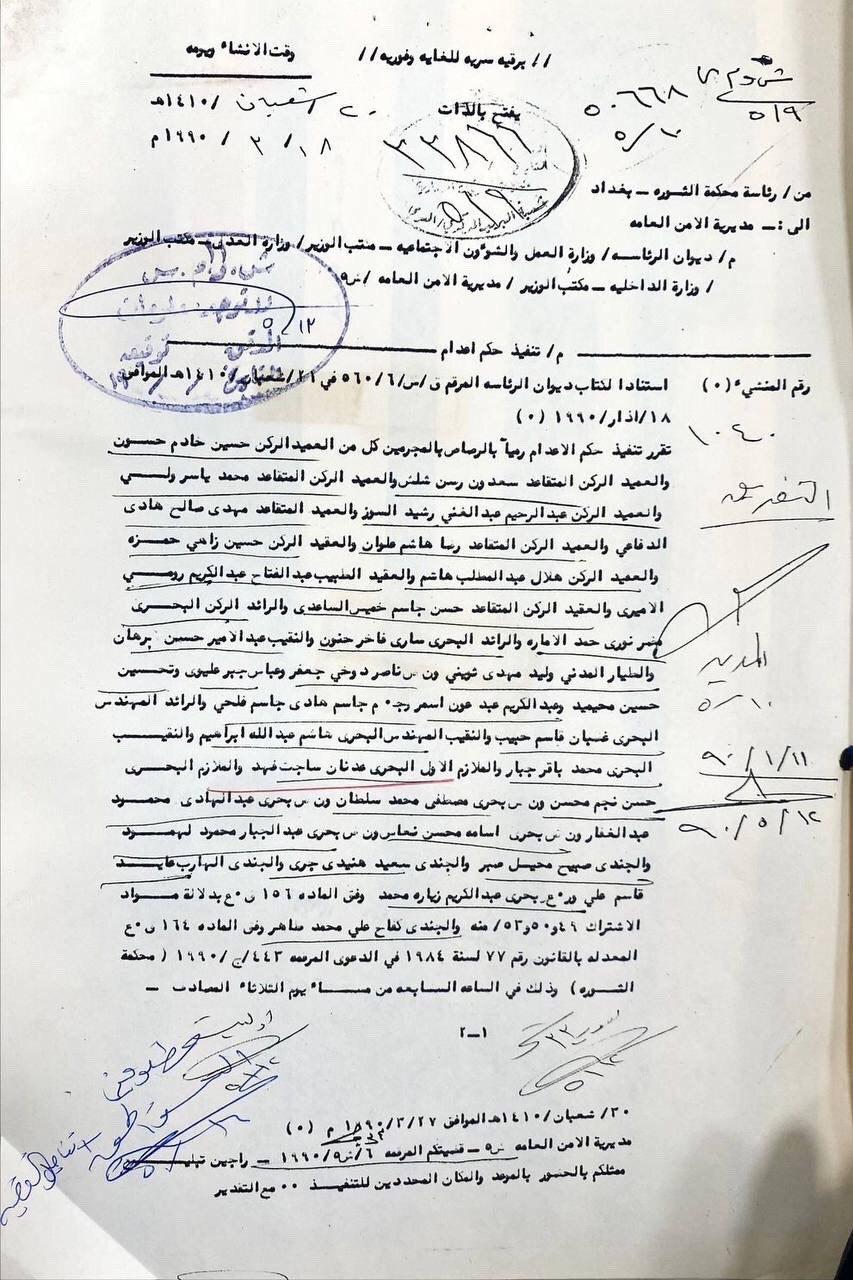 // برقيه سريه للغايه وفوريه //
وقت الانشاء ويومه
٢٠ / شعبان / ١٤١٠هـ
١٨ / ٣ / ١٩٩٠ م
يفتح بالذات
٥٠٦٦٨
٥/٩
٥/١٠
من / رئاسة محكمة الثوره – بغداد
الى :– مديرية الامن العامه
م/ ديوان الرئاسه / وزارة العمل والشوءون الاجتماعيه – مكتب الوزير/ وزارة العدل – مكتب الوزير
/ وزارة الداخليه – مكتب الوزير / مديرية الامن العامه /ش٥
م/ تنفيذ حكم اعدام
رقم المنشيء (٠) استنادا لكتاب ديوان الرئاسه المرقم ق/س/٥٦٠/٦ في ٢١/شعبان/١٤١٠هـ الموافق
١٨/اذار/١٩٩٠ (٠)
١٠٤٠
تقرر تنفيذ حكم الاعدام رمياً بالرصاص بالمجرمين كل من العميد الركن حسين خادم حسون
والعميد الركن المتقاعد سعدون رسن شلش والعميد الركن المتقاعد محمد ياسر ولي
والعميد الركن عبد الرحيم عبد الغني رشيد السوز والعميد المتقاعد مهدى صالح هادى
الدفاعي والعميد الركن المتقاعد رضا هاشم علوان والعقيد الركن حسين زاهي حمزه
والعميد الركن هلال عبد المطلب هاشم والعقيد الطبيب عبد الفتاح عبد الكريم رومي
الاميرى والعقيد الركن المتقاعد حسن جاسم خميس الساعدى والرائد الركن البحرى
مضر نورى حمد الاماره والرائد البحرى سارى فاخر حنون والنقيب عبد الامير حسين برهان
والطيار المدني وليد مهدى ثويني ون س ناصر دوخي جعفر وعباس جبر عليوى وتحسين
حسين محيميد وعبد الكريم عبد عون اسمر رج م جاسم هادى جاسم فلحي والرائد المهندس
البحرى غسبان قاسم حبيب والنقيب المهندس البحرى هاشم عبد الله ابراهيم والنقيب
البحرى محمد باقر جبار والملازم الاول البحرى عدنان ساجت فهد والملازم البحرى
حسن نجم محسن ون س بحرى مصطفى محمد سلطان ون س بحرى عبد الهادى محمود
عبد الغفار ون س بحرى اسامه محسن نعاس ون س بحرى عبد الجبار محمود لهمود
والجندى صبيح محيسل صبر والجندى سعيد هنيدى جرى والجندى الهارب عايد
قاسم علي ور٠ع بحرى عبد الكريم زياره محمد وفق الماده ١٥٦ ق٠ع بدلالة مواد
الاشتراك ٤٩و٥٠و٥٣/ منه والجندى كفاح علي محمد طاهر وفق الماده ١٦٤ ق٠ع
المعدله بالقانون رقم ٧٧ لسنة ١٩٨٤ في الدعوى المرقمه ٤٤٣/ج/١٩٩٠ (محكمة
الثوره) وذلك في الساعه السابعه من مساء يوم الثلاثاء المصادف –
المدير
٥/١٠
٩٠/١/١١
٩٠/٥/١٢
١–٢
٣٠/شعبان/١٤١٠هـ الموافق ١٩٩٠/٣/٢٧ م (٠)
مديرية الامن العامه ش٥ – قضيتكم المرقمه ٦/ش٥/١٩٩٠ – راجين تبليغ
ممثلكم بالحضور بالموعد والمكان المحددين للتنفيذ ٠٠ مع التقدير